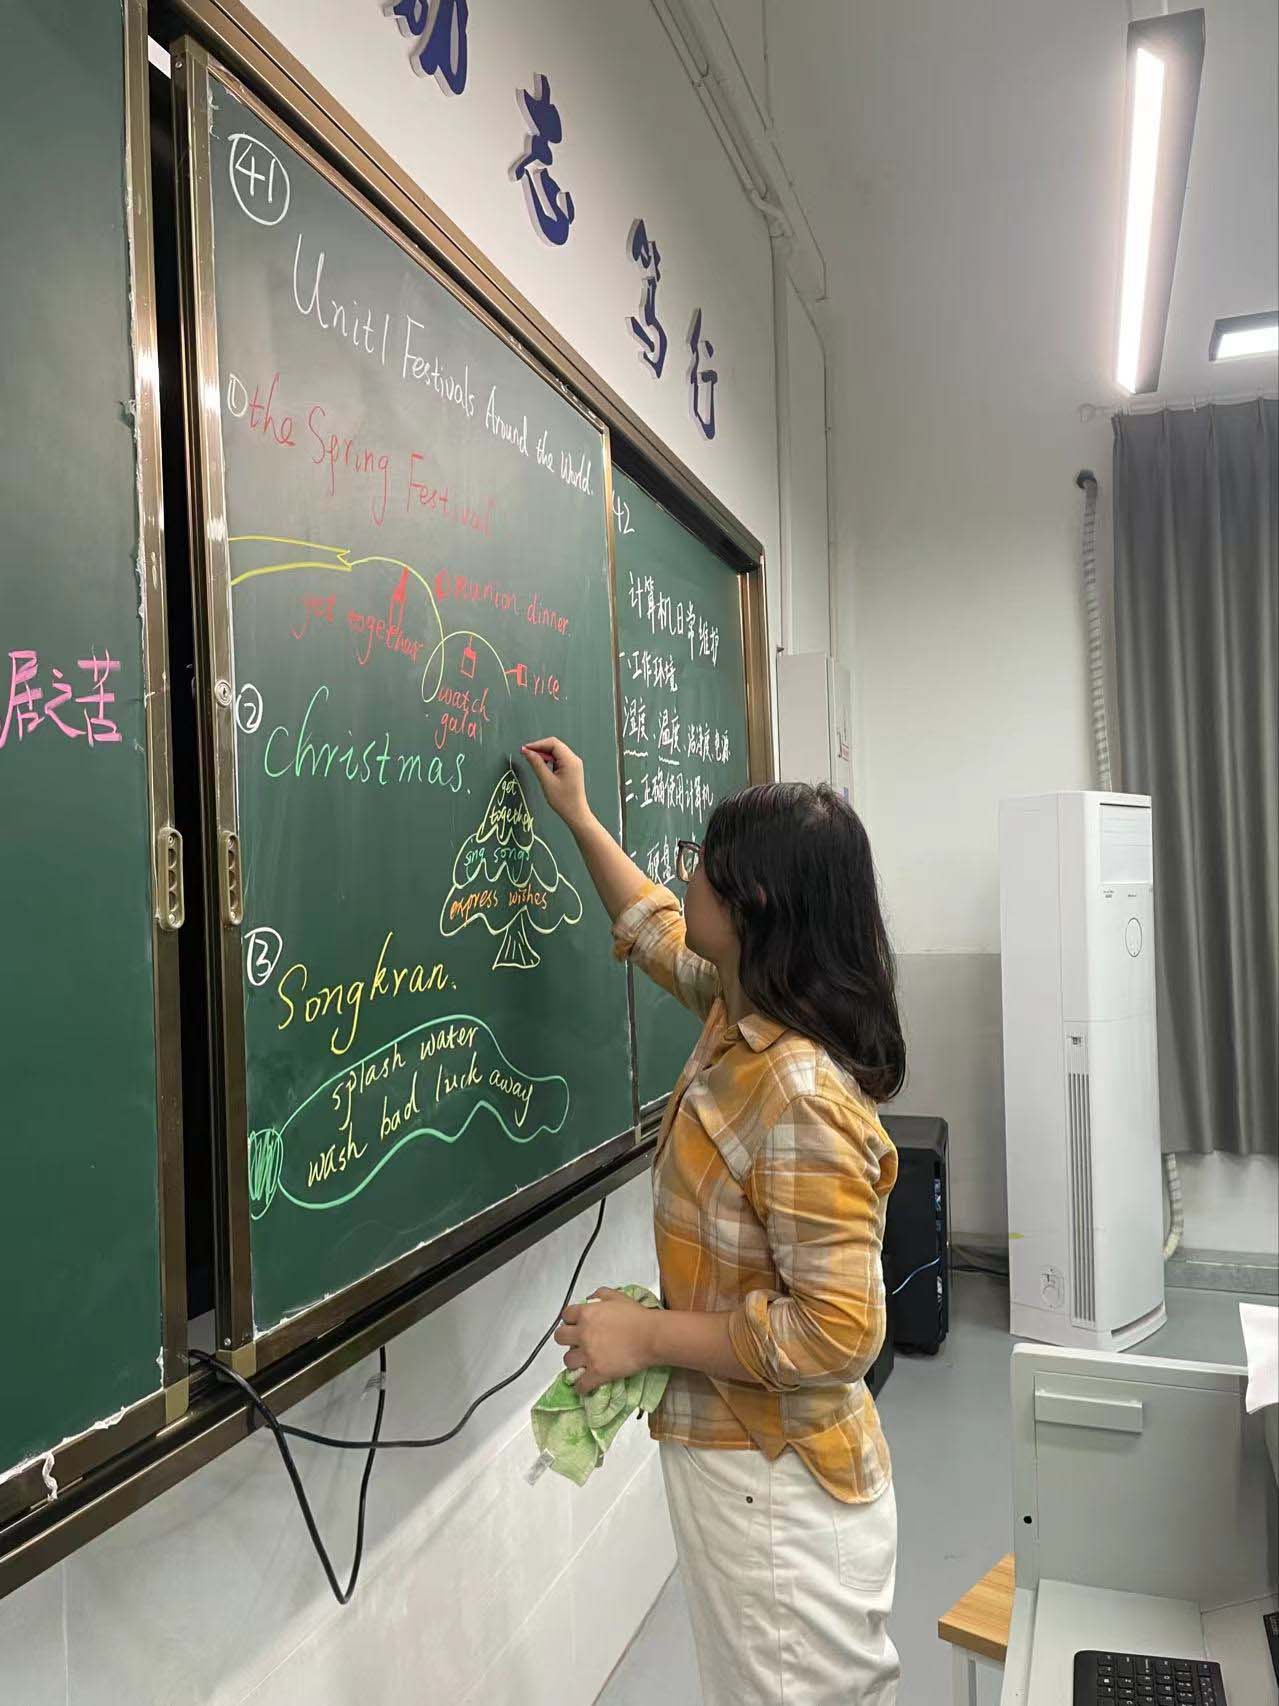 志
笃
行
居之苦
41
Unit1 Festivals Around the World.
① the Spring Festival
get together
reunion dinner.
watch
gala
rice.
② Christmas.
get
together
sing songs
express wishes
③ Songkran.
splash water
wash bad luck away
42
计算机日常维护
一、工作环境
湿度、温度、洁净度、电源
二、正确使用计算机
硬盘